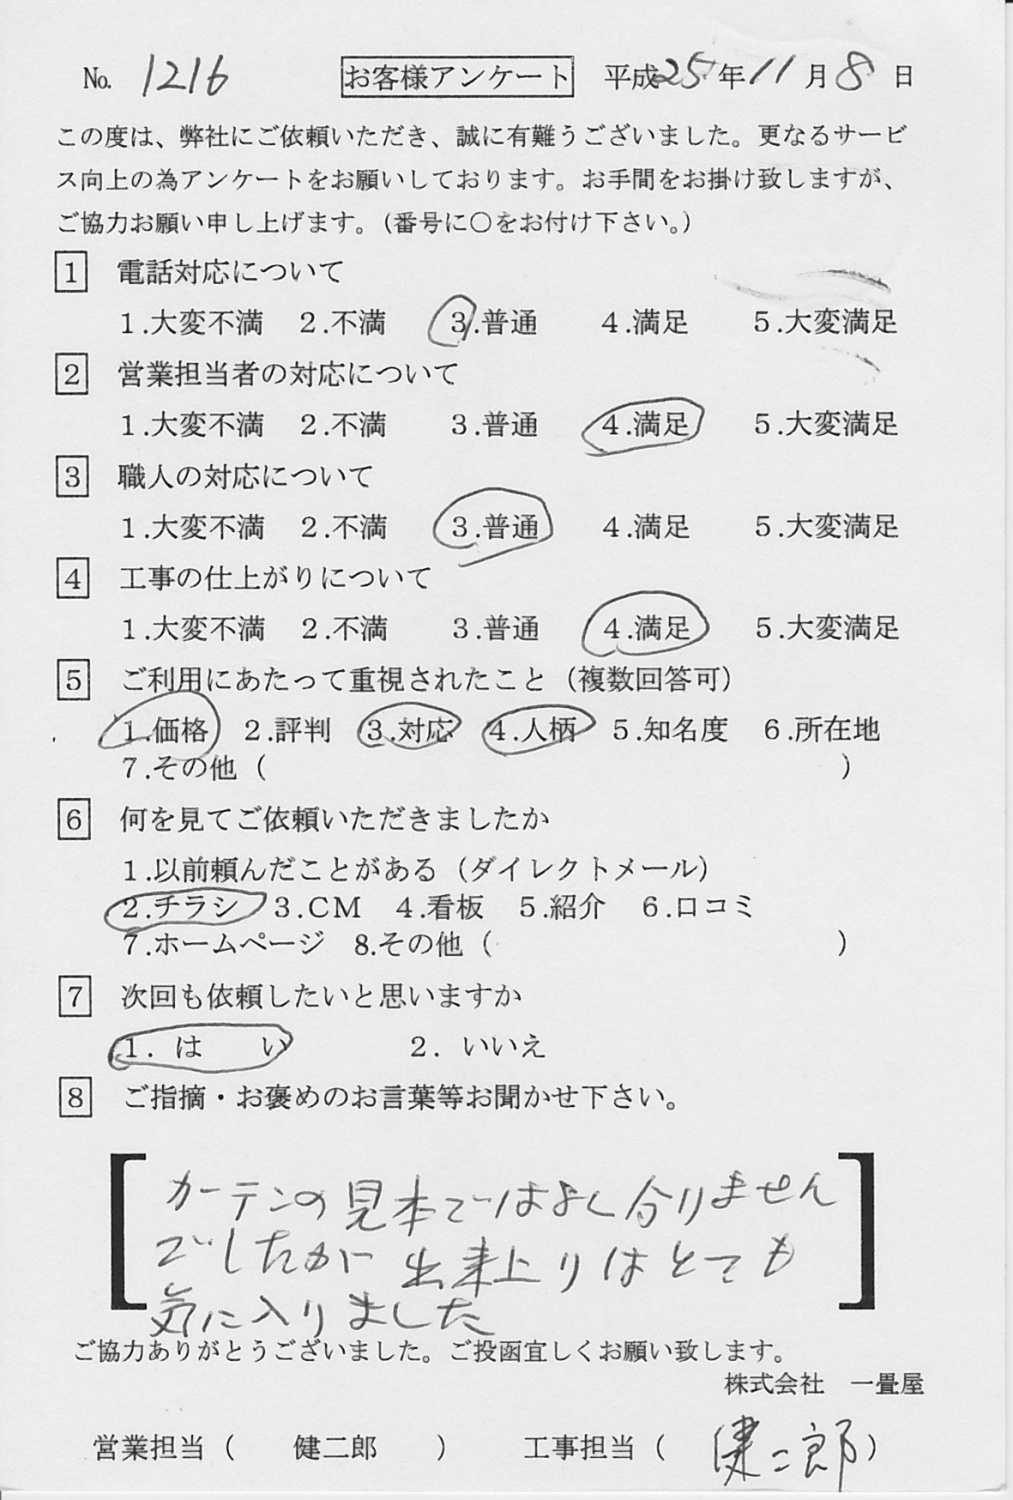 No. 1216 お客様アンケート 平成25年11月8日
この度は、弊社にご依頼いただき、誠に有難うございました。更なるサービ
ス向上の為アンケートをお願いしております。お手間をお掛け致しますが、
ご協力お願い申し上げます。(番号に〇をお付け下さい。)
1 電話対応について
1.大変不満 2.不満 3.普通 4.満足 5.大変満足
2 営業担当者の対応について
1.大変不満 2.不満 3.普通 4.満足 5.大変満足
3 職人の対応について
1.大変不満 2.不満 3.普通 4.満足 5.大変満足
4 工事の仕上がりについて
1.大変不満 2.不満 3.普通 4.満足 5.大変満足
5 ご利用にあたって重視されたこと(複数回答可)
1.価格 2.評判 3.対応 4.人柄 5.知名度 6.所在地
7.その他( )
6 何を見てご依頼いただきましたか
1.以前頼んだことがある(ダイレクトメール)
2.チラシ 3.CM 4.看板 5.紹介 6.口コミ
7.ホームページ 8.その他( )
7 次回も依頼したいと思いますか
1. はい 2. いいえ
8 ご指摘・お褒めのお言葉等お聞かせ下さい。
カーテンの見本ではよく分りません
でしたが出来上りはとても
気に入りました
ご協力ありがとうございました。ご投函宜しくお願い致します。
株式会社 一畳屋
営業担当( 健二郎 ) 工事担当( 健二郎 )